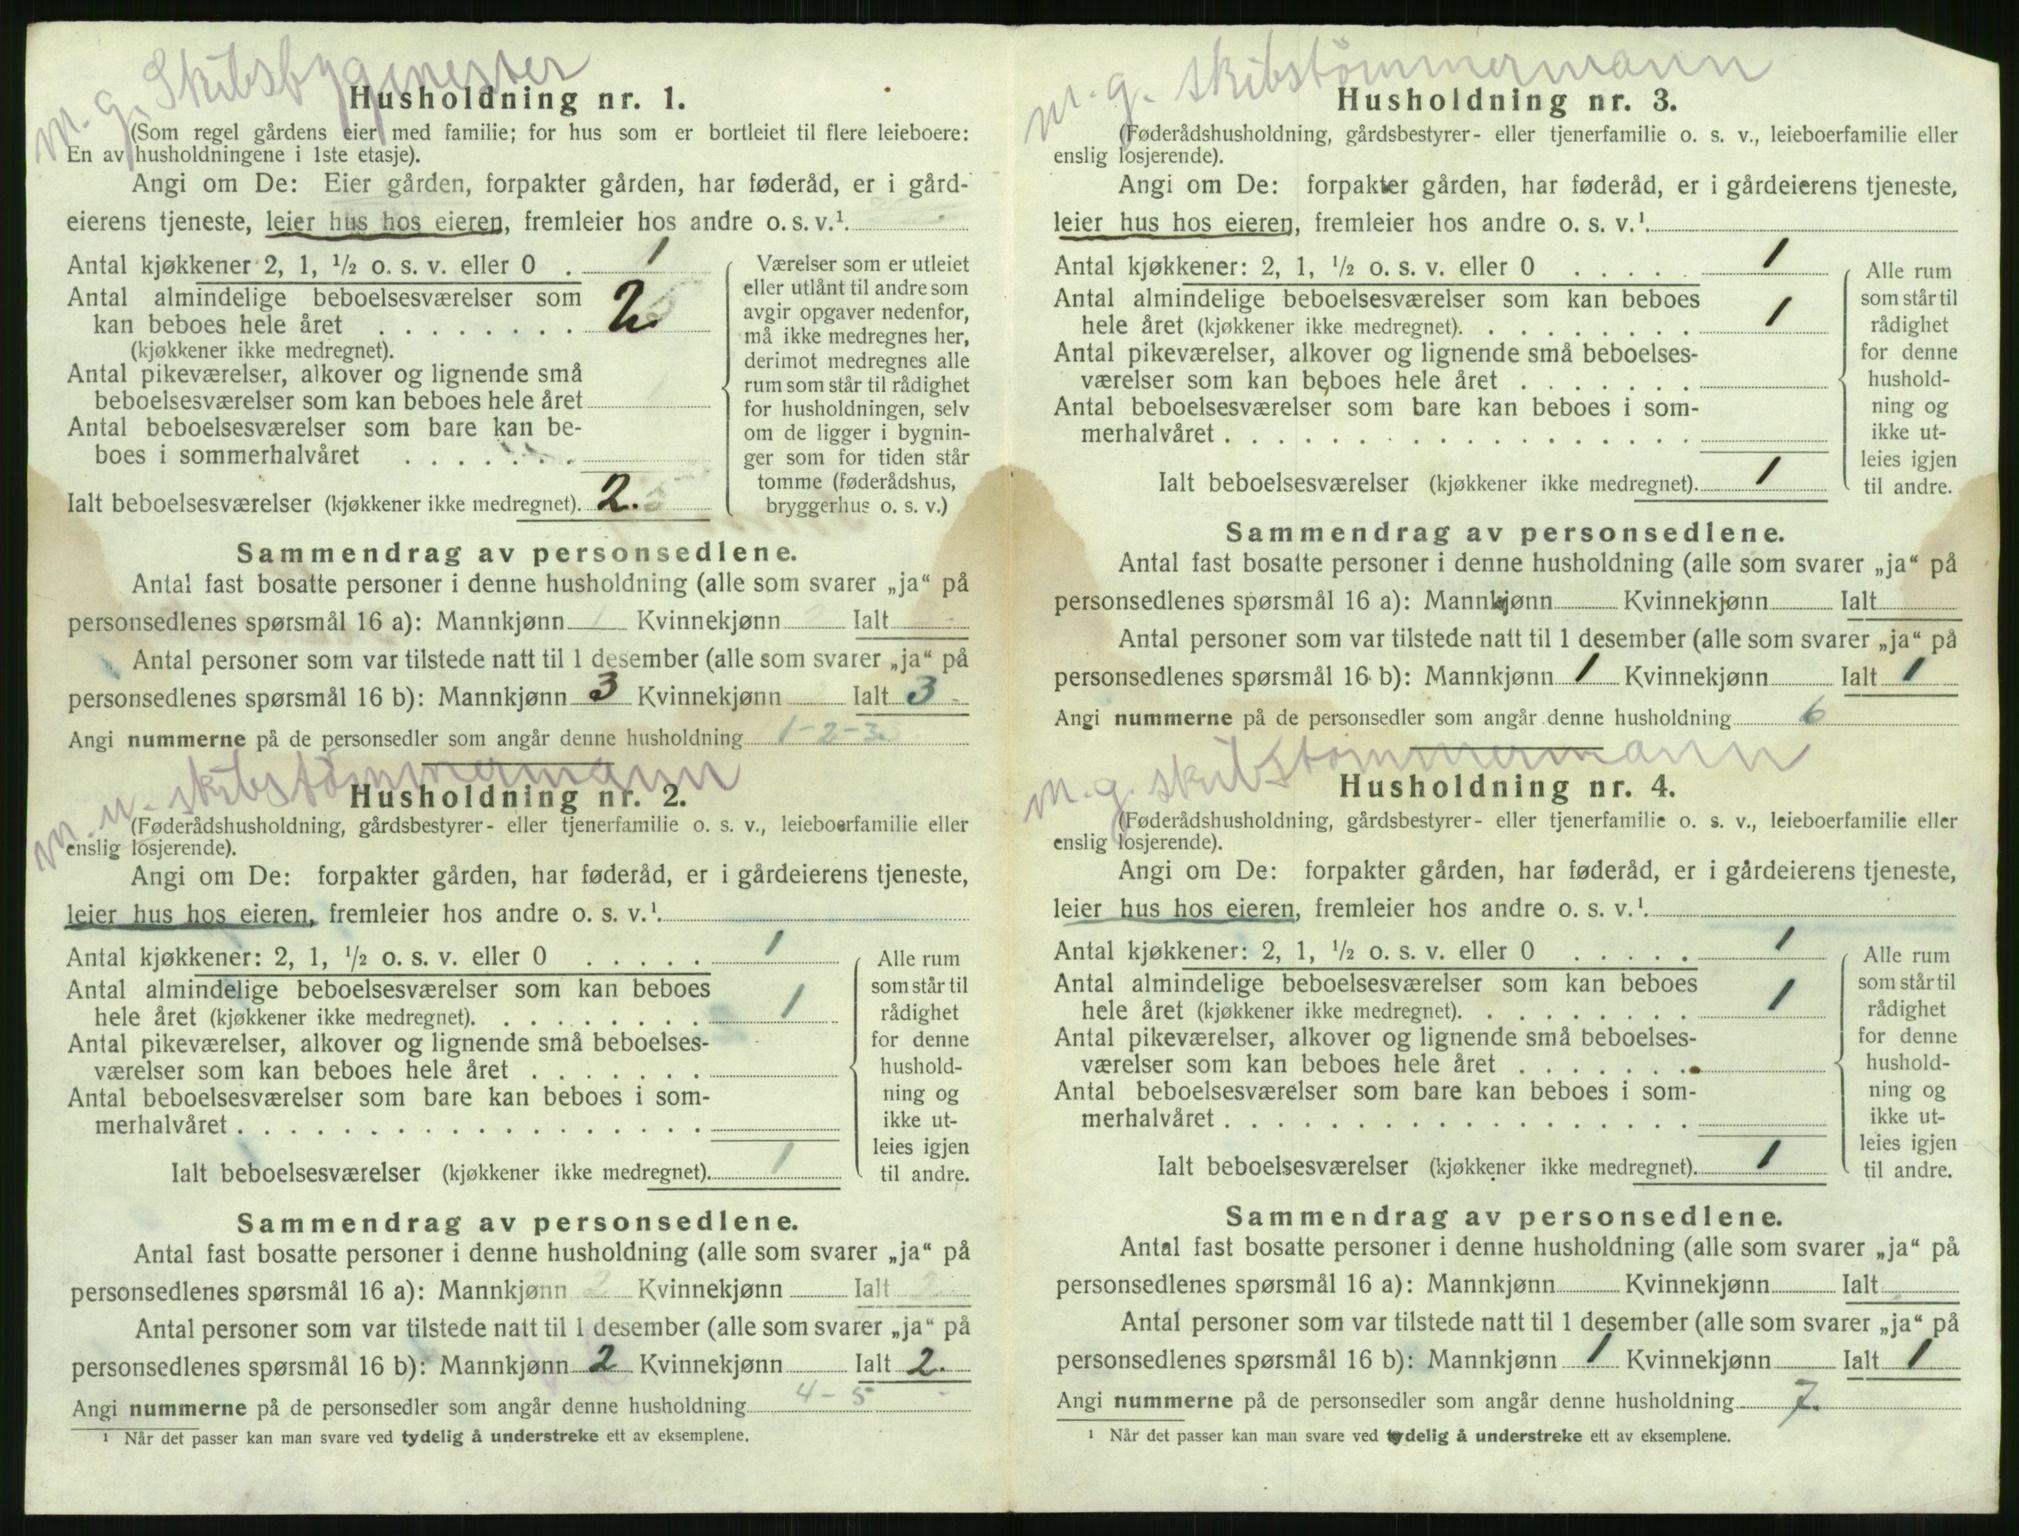 m. g. Skibsbygmester
Husholdning nr. 1.
(Som regel gårdens eier med familie; for hus som er bortleiet til flere leieboere:
En av husholdningene i 1ste etasje).
Angi om De: Eier gården, forpakter gården, har føderåd, er i gård-
eierens tjeneste, leier hus hos eieren, fremleier hos andre o. s. v.¹.
Antal kjøkkener 2, 1, ½ o. s. v. eller 0 . 1
Antal almindelige beboelsesværelser som
kan beboes hele året . . . . . . . . 2
(kjøkkener ikke medregnet).
Antal pikeværelser, alkover og lignende små
beboelsesværelser som kan beboes hele året
Antal beboelsesværelser som bare kan be-
boes i sommerhalvåret . . . . . . .
Ialt beboelsesværelser (kjøkkener ikke medregnet). 2.
Værelser som er utleiet
eller utlånt til andre som
avgir opgaver nedenfor,
må ikke medregnes her,
derimot medregnes alle
rum som står til rådighet
for husholdningen, selv
om de ligger i bygnin-
ger som for tiden står
tomme (føderådshus,
bryggerhus o. s. v.)
Sammendrag av personsedlene.
Antal fast bosatte personer i denne husholdning (alle som svarer „ja“ på
personsedlenes spørsmål 16 a): Mannkjønn 1 Kvinnekjønn Ialt
Antal personer som var tilstede natt til 1 desember (alle som svarer „ja“ på
personsedlenes spørsmål 16 b): Mannkjønn 3 Kvinnekjønn Ialt 3
Angi nummerne på de personsedler som angår denne husholdning 1-2-3
m. u. skibstömmermann
Husholdning nr. 2.
(Føderådshusholdning, gårdsbestyrer- eller tjenerfamilie o. s. v., leieboerfamilie eller
enslig losjerende).
Angi om De: forpakter gården, har føderåd, er i gårdeierens tjeneste,
leier hus hos eieren, fremleier hos andre o. s. v.¹.
Antal kjøkkener: 2, 1, ½ o. s. v. eller 0 . . . . . 1
Antal almindelige beboelsesværelser som kan beboes
hele året (kjøkkener ikke medregnet). . . . . . . . . 1
Antal pikeværelser, alkover og lignende små beboelses-
værelser som kan beboes hele året . . . . . . .
Antal beboelsesværelser som bare kan beboes i som-
merhalvåret . . . . . . . . . . . . . . . . . .
Ialt beboelsesværelser (kjøkkener ikke medregnet). 1
Alle rum
som står til
rådighet
for denne
hushold-
ning og
ikke ut-
leies igjen
til andre.
Sammendrag av personsedlene.
Antal fast bosatte personer i denne husholdning (alle som svarer „ja“ på
personsedlenes spørsmål 16 a): Mannkjønn 2 Kvinnekjønn Ialt 2
Antal personer som var tilstede natt til 1 desember (alle som svarer „ja“ på
personsedlenes spørsmål 16 b): Mannkjønn 2 Kvinnekjønn Ialt 2.
Angi nummerne på de personsedler som angår denne husholdning 4-5
¹ Når det passer kan man svare ved tydelig å understreke ett av eksemplene.
m. g. skibstømmermann
Husholdning nr. 3.
(Føderådshusholdning, gårdsbestyrer- eller tjenerfamilie o. s. v., leieboerfamilie eller
enslig losjerende).
Angi om De: forpakter gården, har føderåd, er i gårdeierens tjeneste,
leier hus hos eieren, fremleier hos andre o. s. v.¹.
Antal kjøkkener: 2, 1, ½ o. s. v. eller 0 . . . . . 1
Antal almindelige beboelsesværelser som kan beboes
hele året (kjøkkener ikke medregnet). . . . . . . . . 1
Antal pikeværelser, alkover og lignende små beboelses-
værelser som kan beboes hele året . . . . . . .
Antal beboelsesværelser som bare kan beboes i som-
merhalvåret . . . . . . . . . . . . . . . . . .
Ialt beboelsesværelser (kjøkkener ikke medregnet). 1
Alle rum
som står til
rådighet
for denne
hushold-
ning og
ikke ut-
leies igjen
til andre.
Sammendrag av personsedlene.
Antal fast bosatte personer i denne husholdning (alle som svarer „ja“ på
personsedlenes spørsmål 16 a): Mannkjønn Kvinnekjønn Ialt
Antal personer som var tilstede natt til 1 desember (alle som svarer „ja“ på
personsedlenes spørsmål 16 b): Mannkjønn 1 Kvinnekjønn Ialt 1
Angi nummerne på de personsedler som angår denne husholdning 6
m. g. skibstömmermann
Husholdning nr. 4.
(Føderådshusholdning, gårdsbestyrer- eller tjenerfamilie o. s. v., leieboerfamilie eller
enslig losjerende).
Angi om De: forpakter gården, har føderåd, er i gårdeierens tjeneste,
leier hus hos eieren, fremleier hos andre o. s. v.¹.
Antal kjøkkener: 2, 1, ½ o. s. v. eller 0 . . . . . 1
Antal almindelige beboelsesværelser som kan beboes
hele året (kjøkkener ikke medregnet). . . . . . . . . 1
Antal pikeværelser, alkover og lignende små beboelses-
værelser som kan beboes hele året . . . . . . .
Antal beboelsesværelser som bare kan beboes i som-
merhalvåret . . . . . . . . . . . . . . . . . .
Ialt beboelsesværelser (kjøkkener ikke medregnet). 1
Alle rum
som står til
rådighet
for denne
hushold-
ning og
ikke ut-
leies igjen
til andre.
Sammendrag av personsedlene.
Antal fast bosatte personer i denne husholdning (alle som svarer „ja“ på
personsedlenes spørsmål 16 a): Mannkjønn Kvinnekjønn Ialt
Antal personer som var tilstede natt til 1 desember (alle som svarer „ja“ på
personsedlenes spørsmål 16 b): Mannkjønn 1 Kvinnekjønn Ialt 1
Angi nummerne på de personsedler som angår denne husholdning 7.
¹ Når det passer kan man svare ved tydelig å understreke ett av eksemplene.